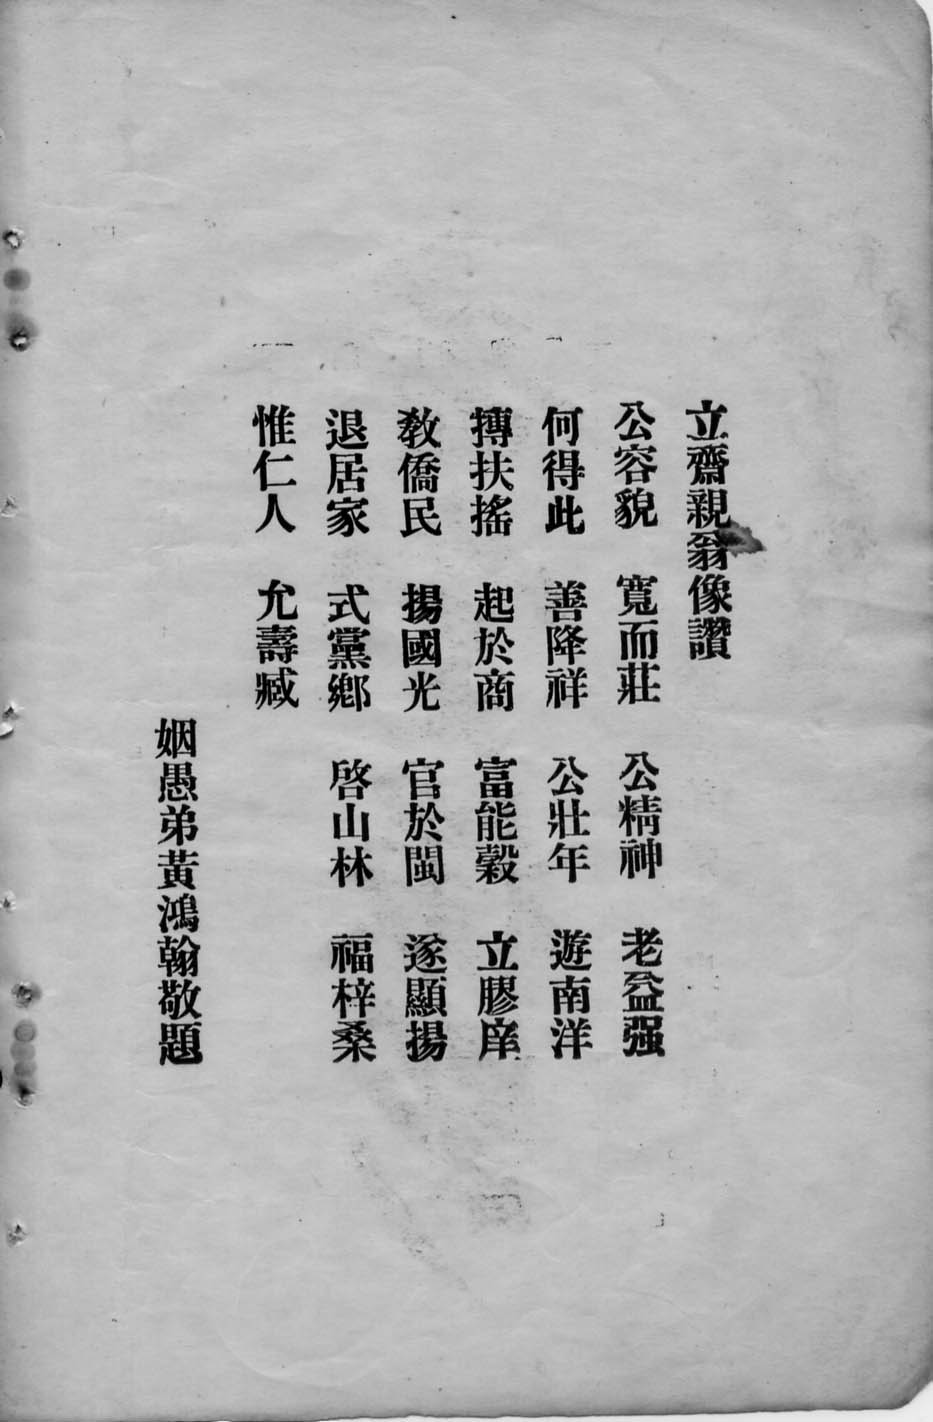 立齋親翁像讚
公容貌　寬而莊　公精神　老益强
何得此　善降祥　公壯年　遊南洋
搏扶搖　起於商　富能穀　立膠庠
敎僑民　揚國光　官於閩　遂顯揚
退居家　式黨鄉　啓山林　福梓桑
惟仁人　允壽臧
姻愚弟黃鴻翰敬題